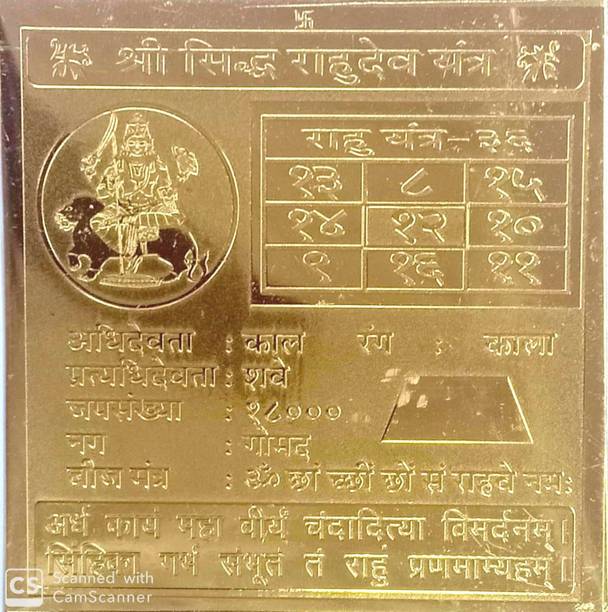 卐
श्री सिद्ध राहुदेव यंत्र
राहु यंत्र-३६
१३ ८ १५
१४ १२ १०
९ १६ ११
अधिदेवता : काल रंग : काला
प्रत्यधिदेवता : शवे
जपसंख्या : १८०००
नग : गोमद
बीज मंत्र : ॐ छां च्छीं छों सं राहवे नमः
अर्ध कायं महा वीर्यं चंदादित्या विमर्दनम्।
सिंहिका गर्भ संभूतं तं राहुं प्रणमाम्यहम्।
CS Scanned with
CamScanner